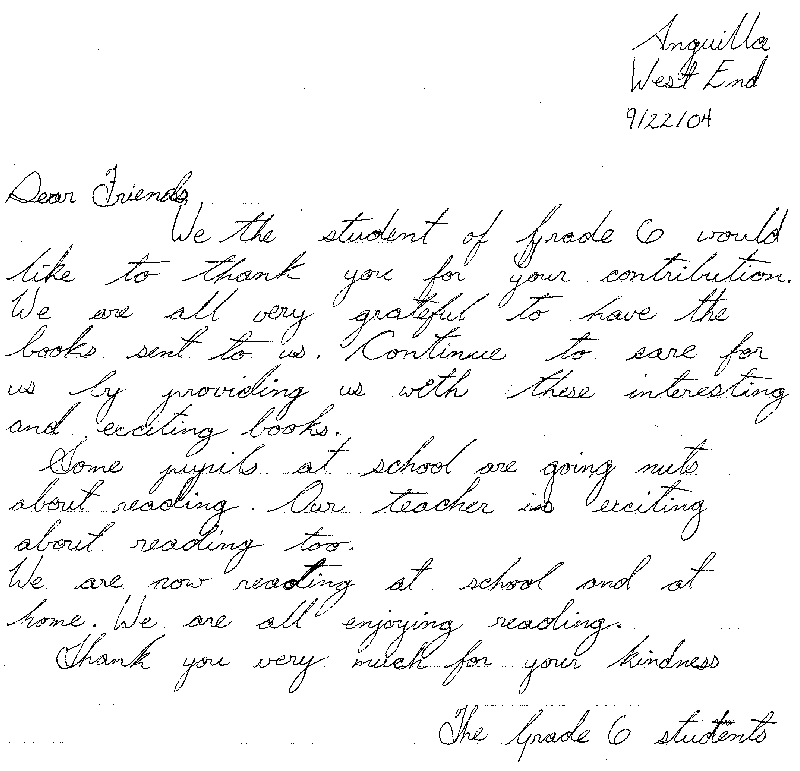 Anguilla
West End
9/22/04
Dear Friends,
We the student of Grade 6 would
like to thank you for your contribution.
We are all very grateful to have the
books sent to us. Continue to care for
us by providing us with these interesting
and exciting books.
Some pupils at school are going nuts
about reading. Our teacher is exciting
about reading too.
We are now reading at school and at
home. We are all enjoying reading.
Thank you very much for your kindness
The Grade 6 students